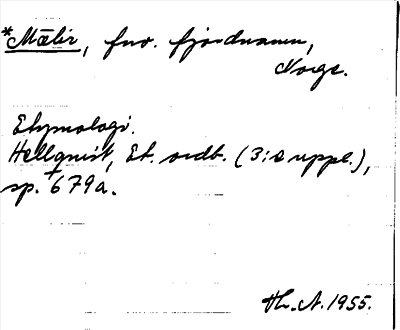 *Mælir, fno. fjordnamn,
Norge.
Etymologi.
Hellquist, Et. ordb. (3:e uppl.),
sp. 679a.
Th. A. 1955.